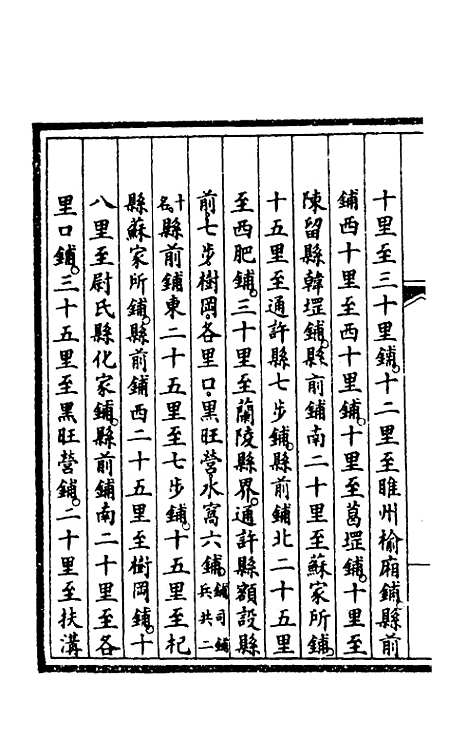 十里至三十里鋪。十二里至睢州榆廂鋪縣前
鋪西十里至西十里鋪。十里至葛堽鋪。十里至
陳留縣韓堽鋪。縣前鋪南二十里至蘇家所鋪。
十五里至通許縣七步鋪。縣前鋪北二十五里
至西肥鋪。三十里至蘭陵縣界。通許縣額設縣
前。七步樹岡。各里口。黑旺營。水窩六鋪。鋪司鋪兵共二
十名。縣前鋪東二十五里至七步鋪。十五里至杞
縣蘇家所鋪。縣前鋪西二十五里至樹岡鋪。十
八里至尉氏縣化家鋪。縣前鋪南二十里至各
里口鋪。三十五里至黑旺營鋪。二十里至扶溝